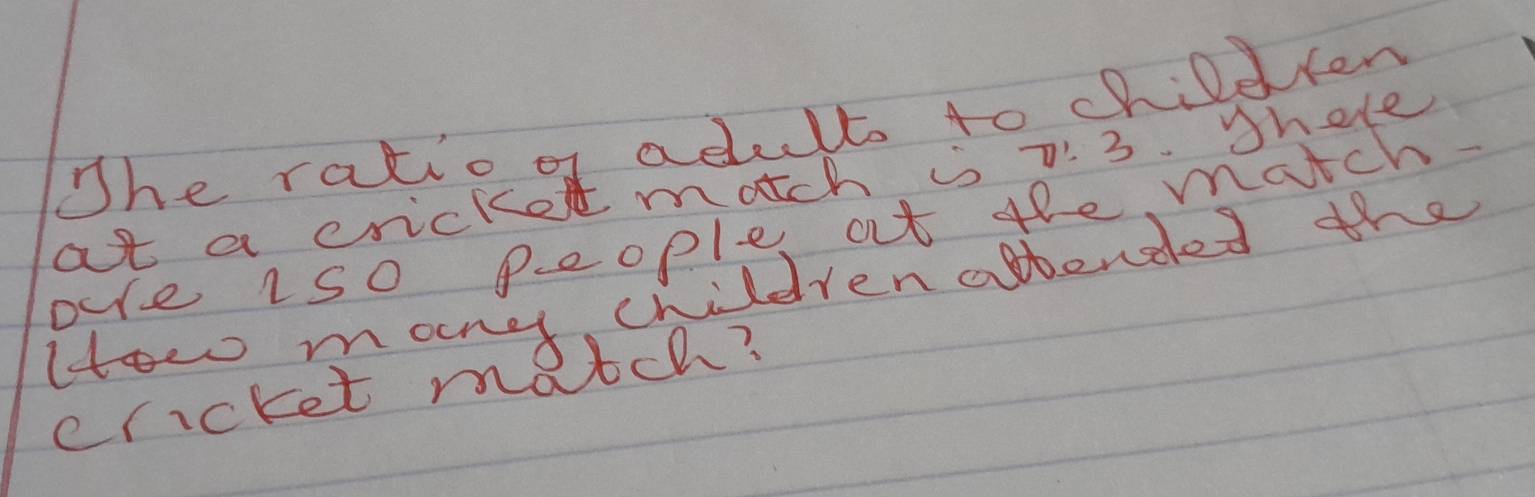 The ratio of adults to children
at a cricket match is 7:3. There
are 250 people at the match.
How many children attended the
cricket match?